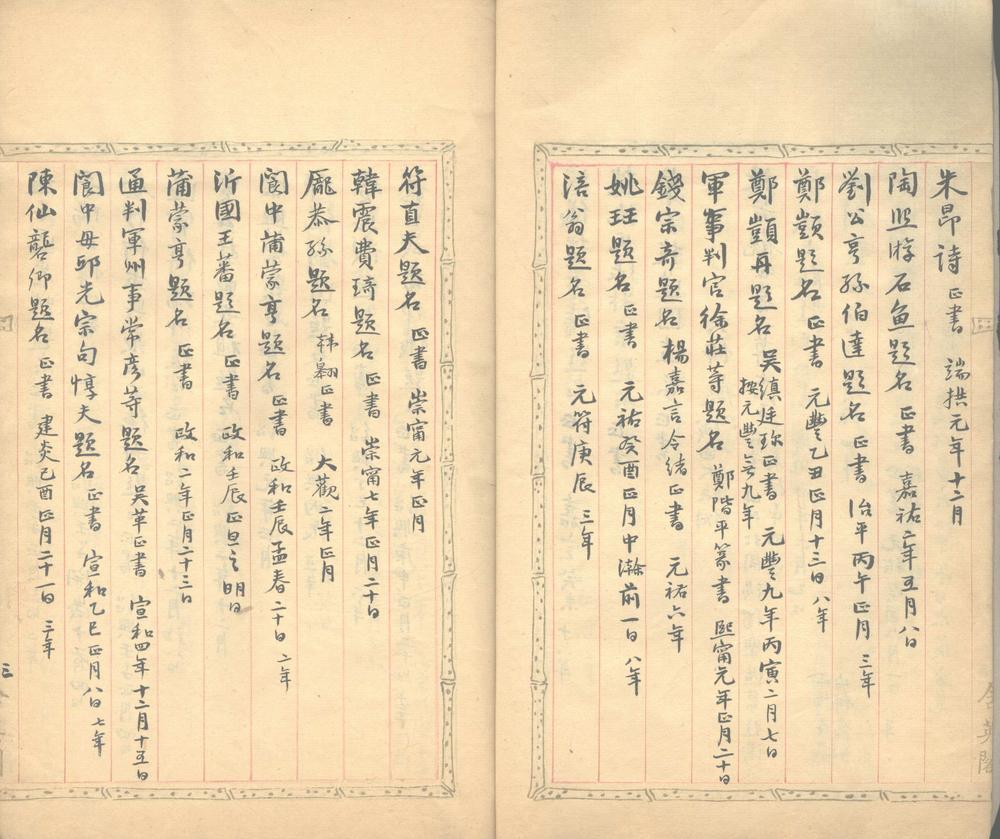 朱昂詩 正書 端拱元年十二月
陶熙㳺石魚題名 正書 嘉祐二年五月八日
劉公亨孫伯達題名 正書 治平丙午正月 三年
鄭顗題名 正書 元豐乙丑正月十三日 八年
鄭顗再題名 吳縝廷珍正書 元豐九年丙寅二月七日
按元豐無九年
軍事判官徐莊等題名 鄭階平篆書 熙甯元年正月二十日
錢宗奇題名 楊嘉言令緒正書 元祐六年
姚珏題名 正書 元祐癸酉正月中澣前一日 八年
涪翁題名 正書 元符庚辰 三年
符直夫題名 正書 崇甯元年正月
韓震費琦題名 正書 崇甯七年正月二十日
龐恭孫題名 韩翱正書 大觀二年正月
閬中蒲蒙亨題名 正書 政和壬辰孟春二十日 二年
沂國王蕃題名 正書 政和壬辰正旦之明日
蒲蒙亨題名 正書 政和二年正月二十三日
通判軍州事常彥等題名 吳革正書 宣和四年十二月十五日
閬中毋邱光宗句惇夫題名 正書 宣和乙巳正月八日 七年
陳似龏卿題名 正書 建炎己酉正月二十一日 三年
三